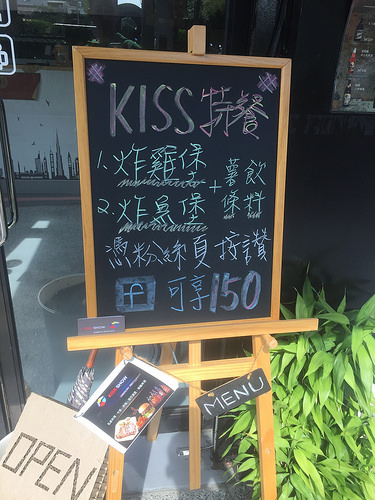 KISS 特餐
1. 炸雞堡
2. 炸魚堡
+ 薯條 飲料
憑粉絲頁按讚
f 可享150
SHOW
MENU
OPEN